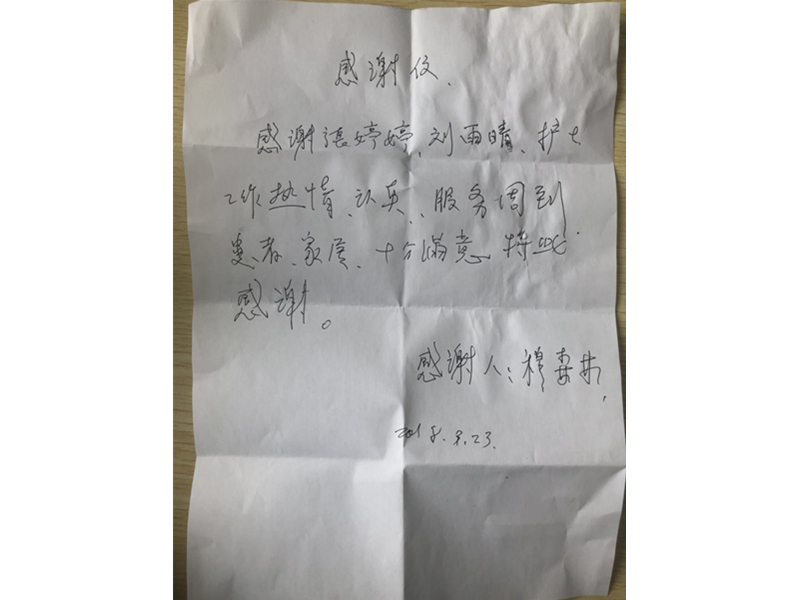 感谢信
感谢張婷婷、刘雨晴、护士
工作热情、认真、服务周到
患者、家属、十分满意 特此
感谢。
感谢人:穆
2018.9.23.